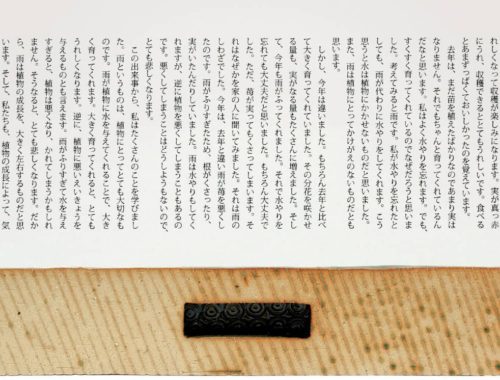 れしくなって収穫が楽しみになります。実が真っ赤
にうれ、収穫できるととてもうれしいです。食べる
とあまずっぱくておいしかったのを覚えています。
去年は、まだ苗を植えたばかりなのであまり実は
なりません。それでもちゃんと育ってくれているん
だなと思います。私はよく水やりを忘れます。でも、
すくすく育ってくれているのでなぜだろうと思いま
した。考えてみると雨です。私が水やりを忘れたと
しても、雨が代わりに水やりをしてくれます。こう
思うと水は植物にかかせないものだと思いました。
また、雨は植物にとってかけがえのないものだとも
思います。
しかし、今年は違いました。もちろん去年と比べ
て大きく育ってくれていました。その分花を咲かせ
る量も、実がなる量もたくさんに増えました。そし
て、今年も雨がふってくれました。それで水やりを
忘れても大丈夫だと思いました。もちろん大丈夫で
した。ただ、苺が実ってもくさってしまいます。そ
れはなぜかを家の人に聞いてみました。それは雨の
しわざでした。今年は、去年と違い雨が苺を悪くし
たのです。雨がふりすぎたため、根がくさったり、
実がいたんだりしていました。雨は水やりもしてく
れますが、逆に植物を悪くしてしまうこともあるの
です。悪くしてしまうことはどうしようもないので、
とても悲しくなります。
この出来事から、私はたくさんのことを学びまし
た。雨というものは、植物にとってとても大切なも
のです。雨が植物に水を与えてくれることで、大き
く育ってくれます。大きく育ってくれると、とても
うれしくなります。逆に、植物に悪いえいきょうを
与えるものとも言えます。雨がふりすぎて水を与え
すぎると、植物は悪くなり、かれてしまうかもしれ
ません。そうなると、とても悲しくなります。だか
ら、雨は植物の成長を、大きく左右するものだと思
います。そして、私たちも、植物の成長によって、気